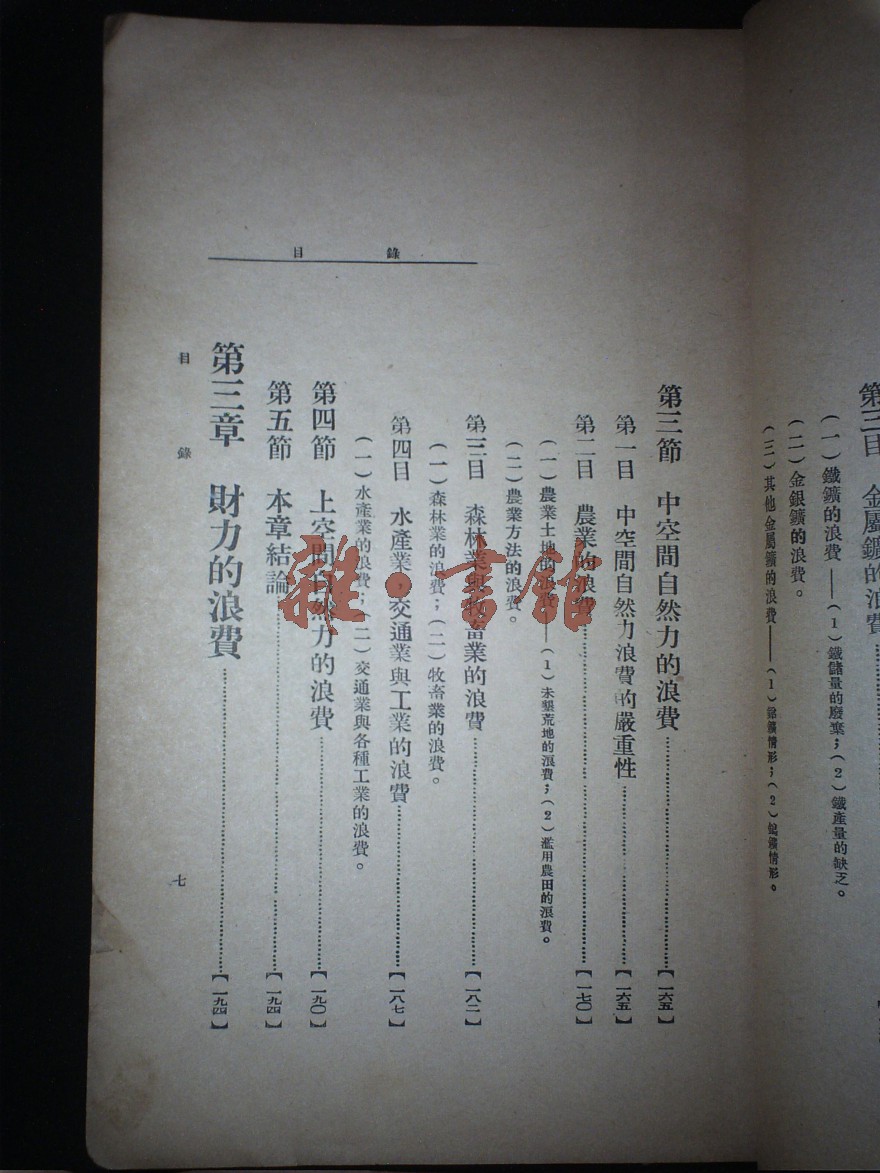 第三目 金屬鑛的浪費
(一)鐵鑛的浪費——(1)鐵儲量的廢棄;(2)鐵產量的缺乏。
(二)金銀鑛的浪費。
(三)其他金屬鑛的浪費——(1)鑛情形;(2)鎢鑛情形。
目錄
第三節 中空間自然力的浪費……【一六五】
第一目 中空間自然力浪費的嚴重性……【一六五】
第二目 農業的浪費……【一七〇】
(一)農業土地的浪費——(1)未墾荒地的浪費;(2)濫用農田的浪費。
(二)農業方法的浪費。
第三目 森林業與牧畜業的浪費……【一八二】
(一)森林業的浪費;(二)牧畜業的浪費。
第四目 水產業,交通業與工業的浪費……【一八七】
(一)水產業的浪費;(二)交通業與各種工業的浪費。
第四節 上空間自然力的浪費……【一九〇】
第五節 本章結論……【一九四】
第三章 財力的浪費……【一九四】
目錄
七
雜·書館